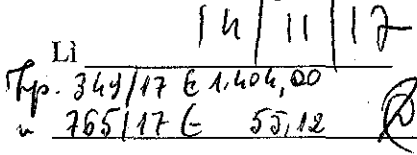 Lì 14/11/17
349/17 € 1.404,00
" 765/17 € 55,12